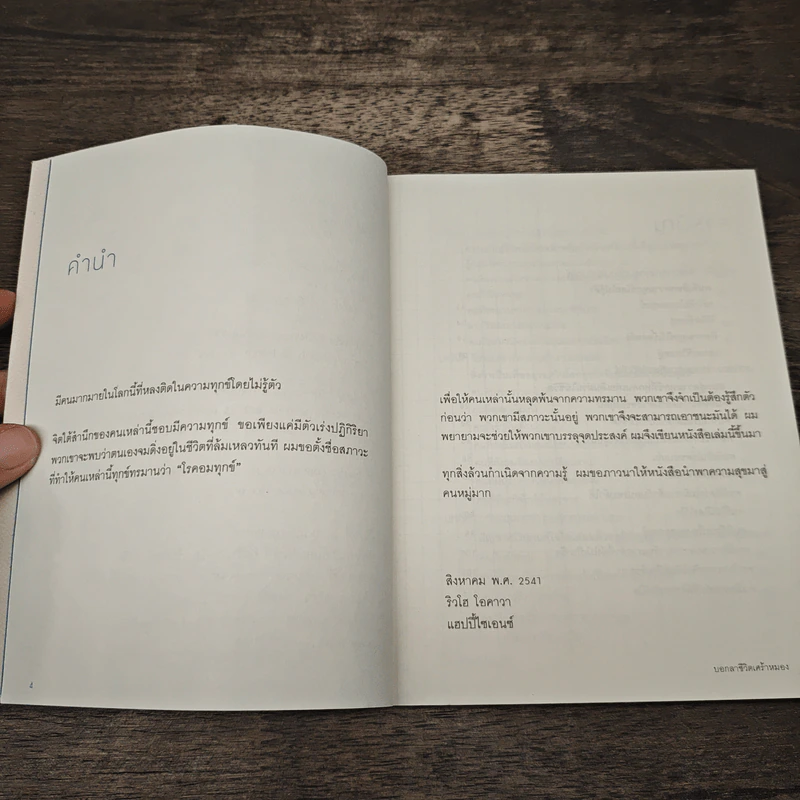 คำนำ
มีคนมากมายในโลกนี้ที่หลงติดในความทุกข์โดยไม่รู้ตัว
จิตใต้สำนึกของคนเหล่านี้ชอบมีความทุกข์ ขอเพียงแค่มีตัวเร่งปฏิกิริยา
พวกเขาจะพบว่าตนเองจมดิ่งอยู่ในชีวิตที่ล้มเหลวทันที ผมขอตั้งชื่อสภาวะ
ที่ทำให้คนเหล่านี้ทุกข์ทรมานว่า “โรคอมทุกข์”
4
เพื่อให้คนเหล่านั้นหลุดพ้นจากความทรมาน พวกเขาจึงจำเป็นต้องรู้สึกตัว
ก่อนว่า พวกเขามีสภาวะนั้นอยู่ พวกเขาจึงจะสามารถเอาชนะมันได้ ผม
พยายามจะช่วยให้พวกเขาบรรลุจุดประสงค์ ผมจึงเขียนหนังสือเล่มนี้ขึ้นมา
ทุกสิ่งล้วนกำเนิดจากความรู้ ผมขอภาวนาให้หนังสือนำพาความสุขมาสู่
คนหมู่มาก
สิงหาคม พ.ศ. 2541
ริวโฮ โอคาวา
แฮปปี้ไซเอนซ์
บอกลาชีวิตเศร้าหมอง